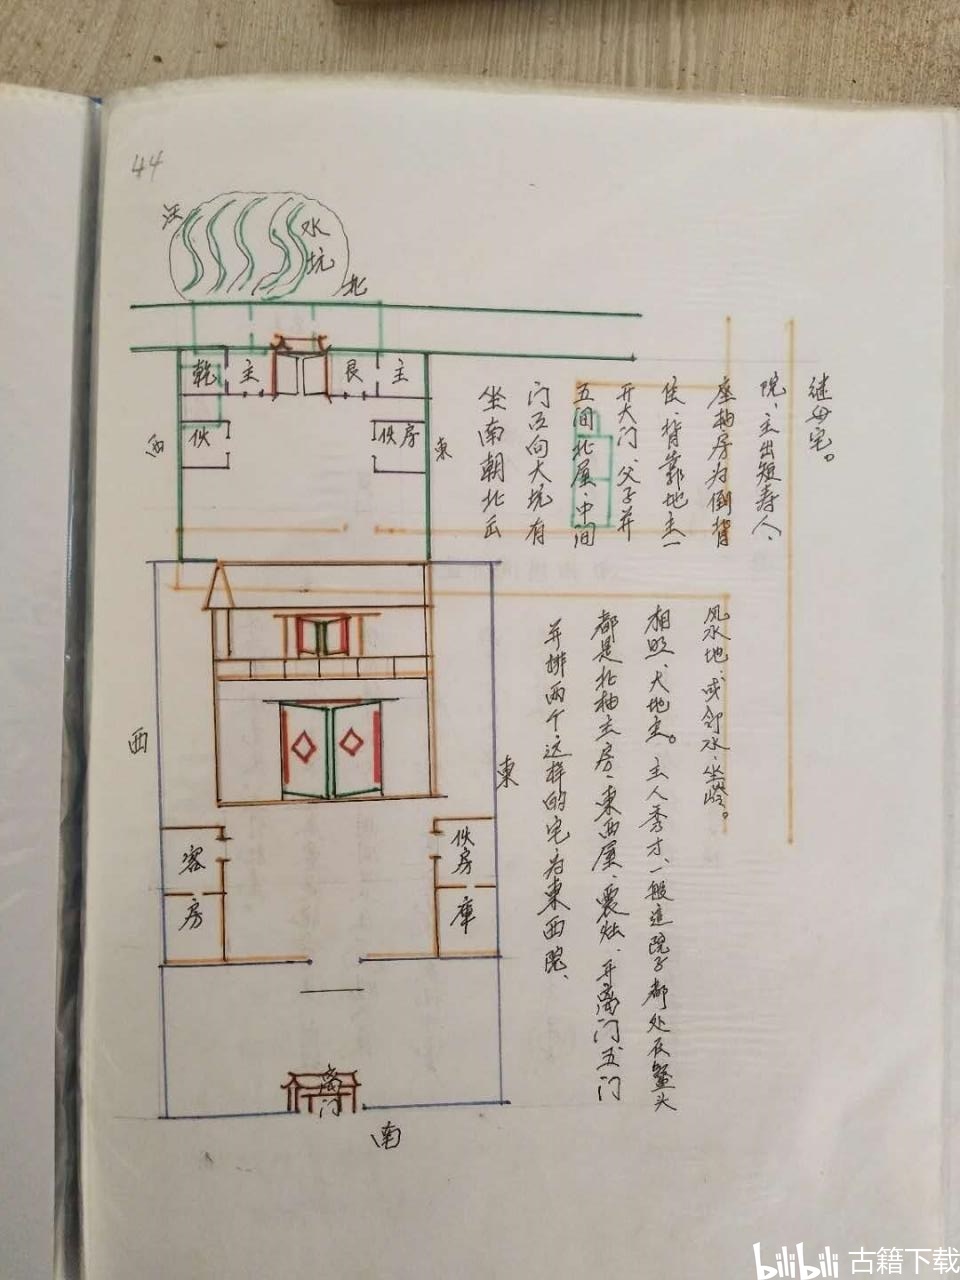 44
汪
水坑
北
乾 主 艮 主
伙 伙房
西 東
坐南朝北
门 向大坑有
五间北屋、中间
开大门、父子并
住、背靠地主一
座柚房为倒背
院、主出短寿人、
继母宅。
并排两个这样的宅为東西院、
都是北柚主房、東西屋、震灶、开离门、五门
相照、大地主。主人秀才、一般這院子都处在鳌头
风水地、或邻水、坐嶺。
西 東
客房
伙房
庫
离门
南
bilibili 古籍下载